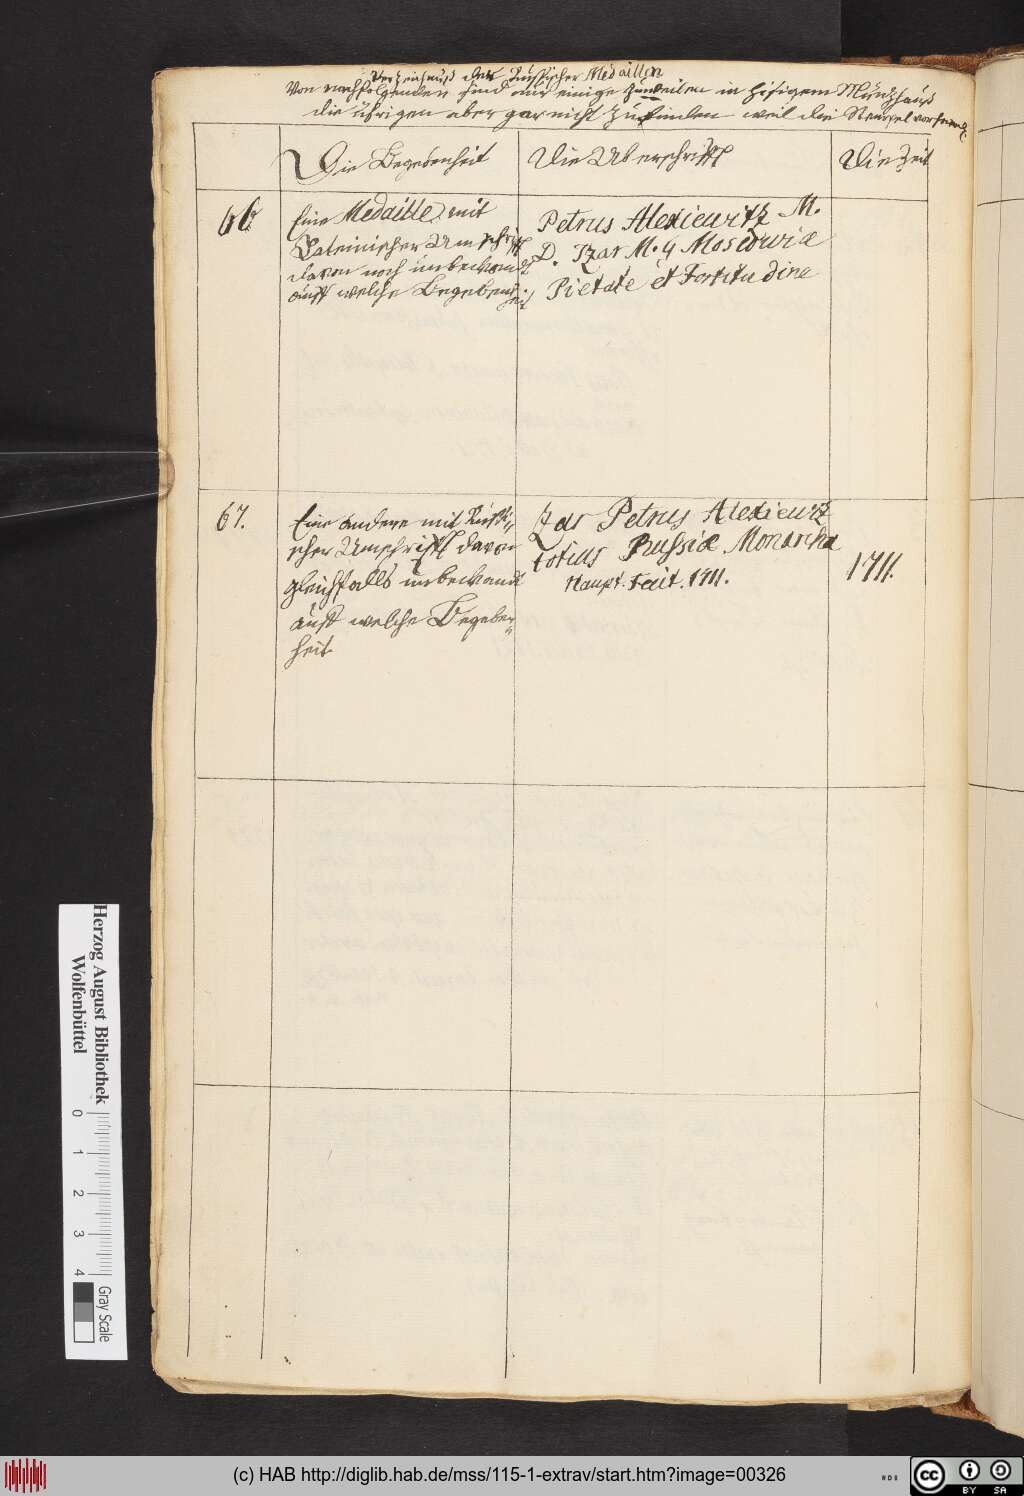 Verzeichnuß der Russischer Medaillen
Von nachfolgenden sind nur einige zuweilen in hisigem Müntzhauß
die übrigen aber gar nicht zu finden weil die Stempel
Die Begebenheit
Die Uberschrifft
Die Zeit
66
Eine Medaille mit
Lateinischer Umschrifft
davon noch unbekandt
auff welche Begebenheit
Petrus Alexiewitz M.
D. Tzar M. 4 Moscoviæ
Pietate et Fortitudine
67.
Eine andere mit Russi-
scher Umschrifft davon
gleichfalls unbekandt
auff welche Begeben-
heit
Zar Petrus Alexiewitz
totius Russiæ Monarcha
Haupt. Fecit. 1711.
1711.
Herzog August Bibliothek
Wolfenbüttel
0 1 2 3 4
Gray Scale
(c) HAB http://diglib.hab.de/mss/115-1-extrav/start.htm?image=00326
cc
BY SA